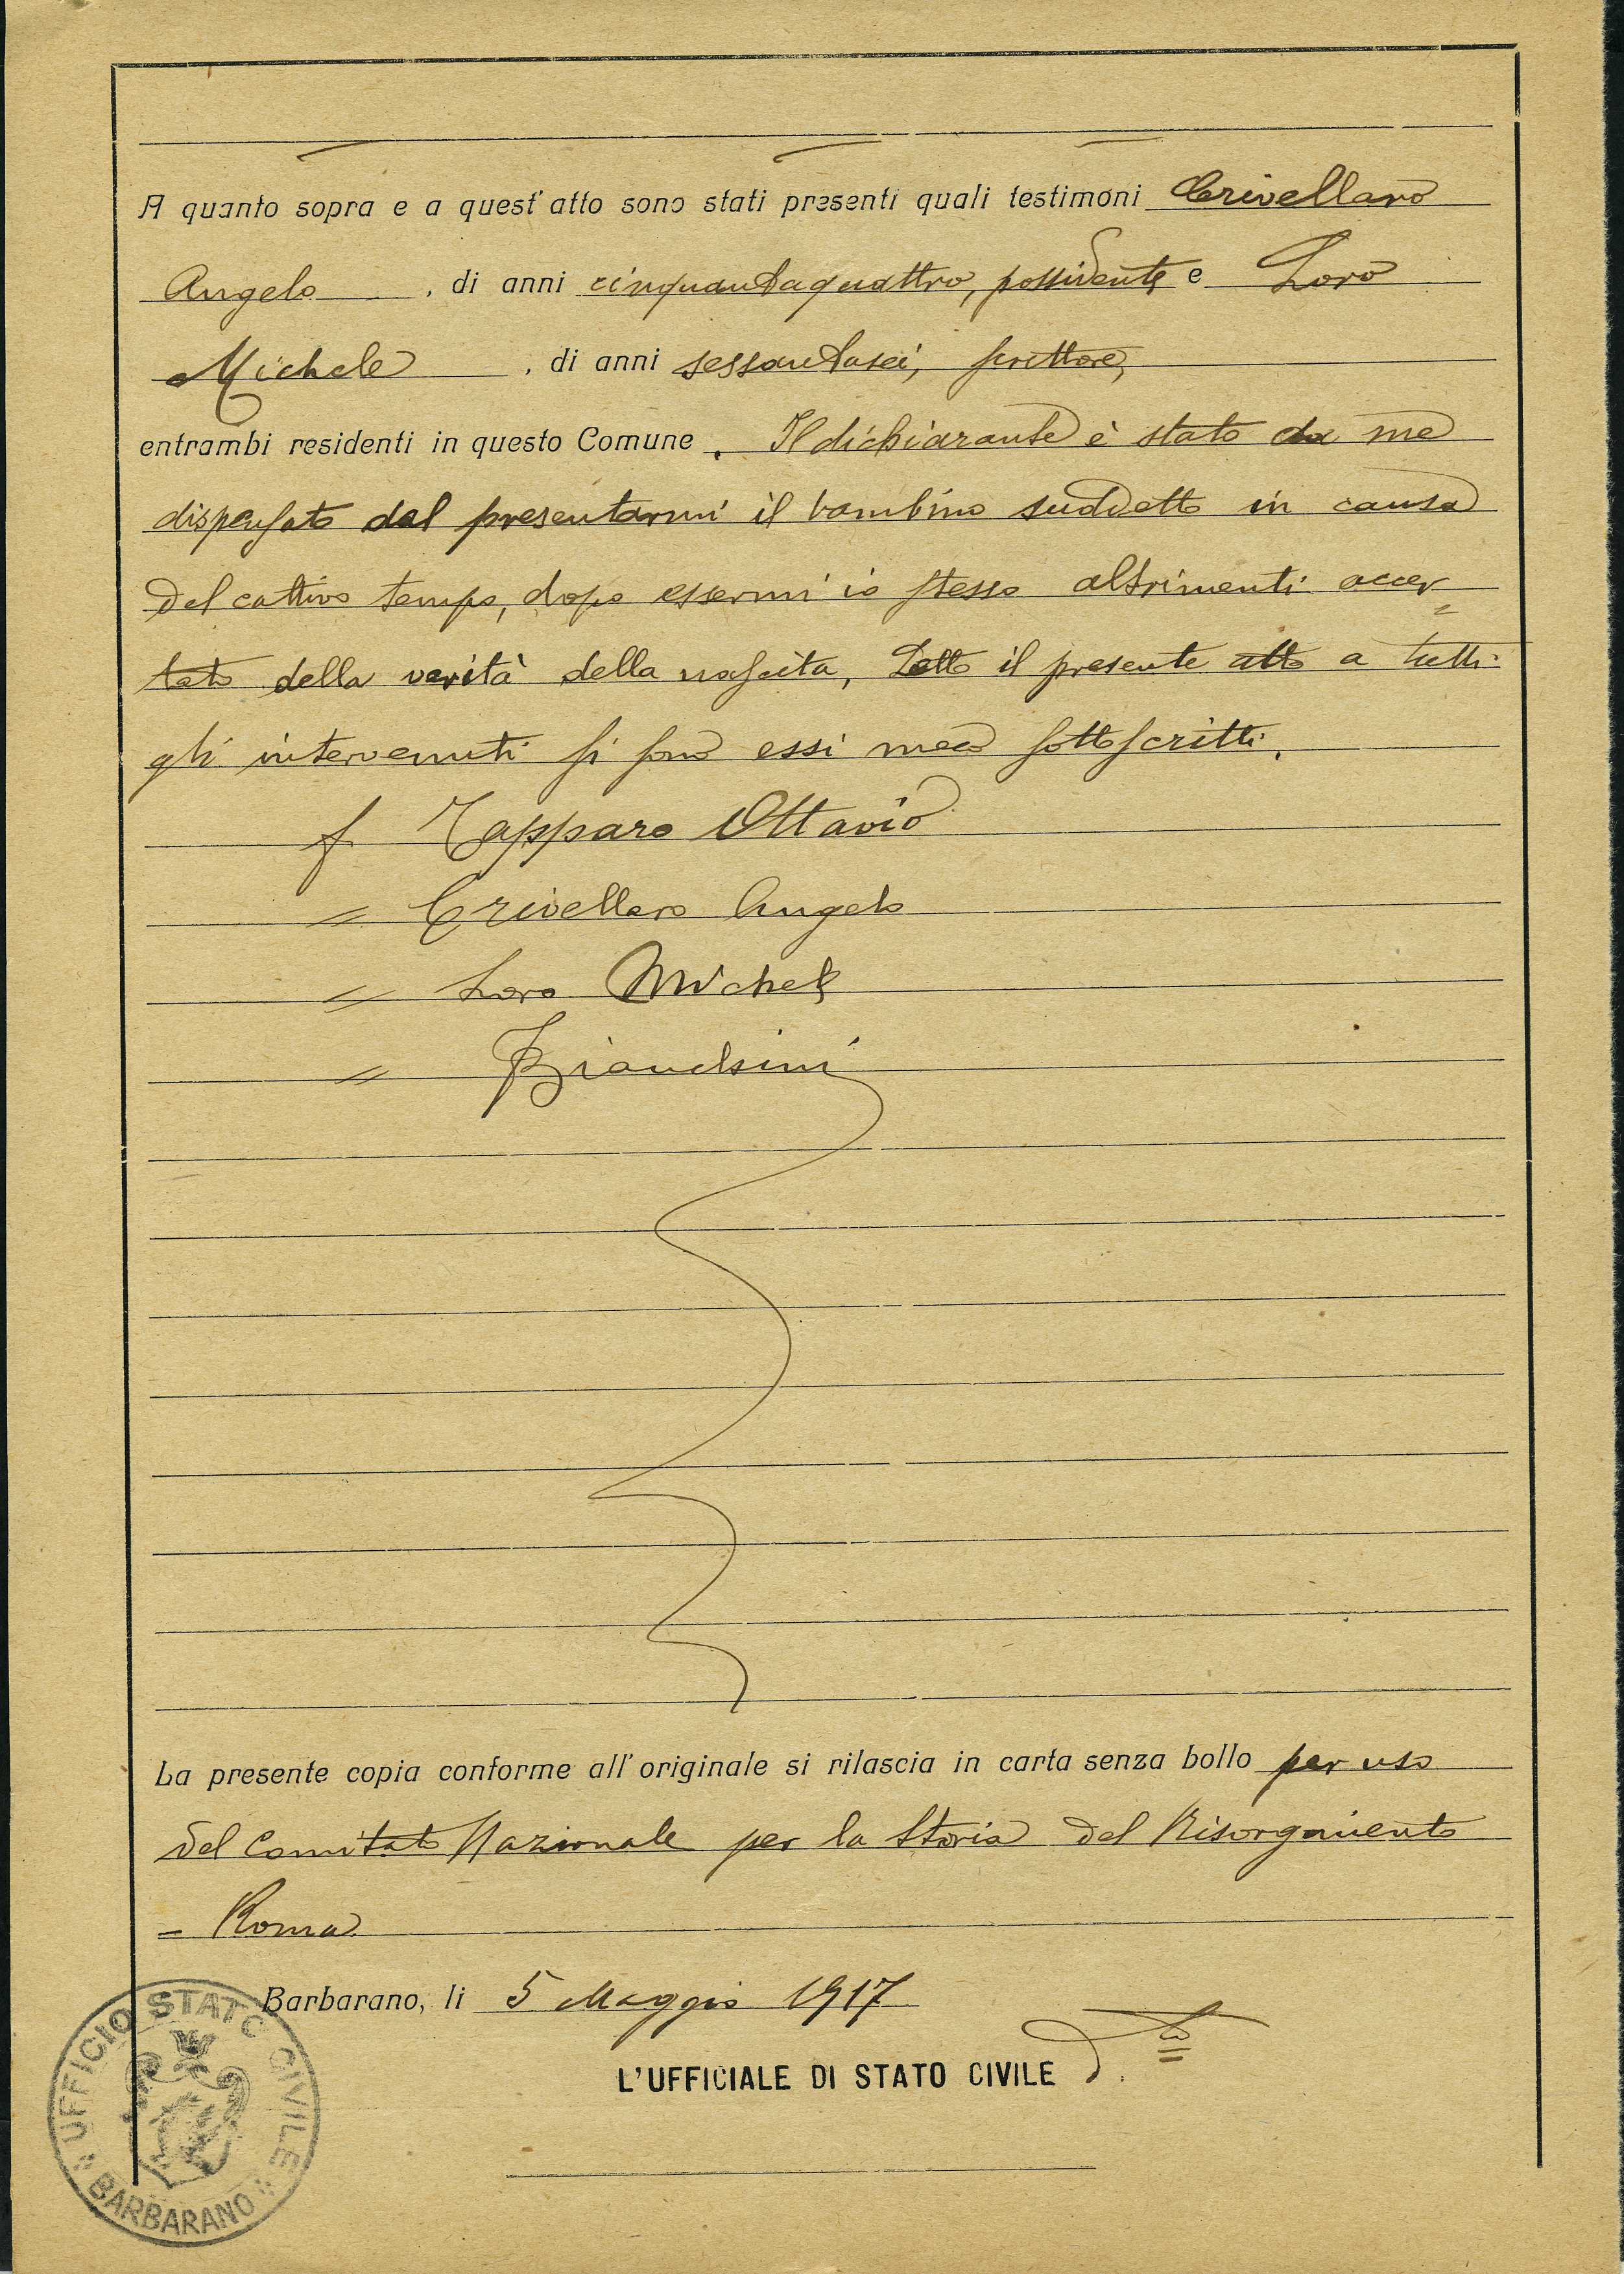 A quanto sopra e a quest'atto sono stati presenti quali testimoni Crivellaro
Angelo, di anni cinquantaquattro, possidente e Loro
Michele, di anni sessantasei, scrittore,
entrambi residenti in questo Comune. Il dichiarante è stato da me
dispensato dal presentarmi il bambino suddetto in causa
del cattivo tempo, dopo essermi io stesso altrimenti accer=
tato della verità della nascita, Letto il presente atto a tutti
gli intervenuti si sono essi meco sottoscritti.
f. Tapparo Ottavio
" Crivellaro Angelo
" Loro Michele
" Bianchini
La presente copia conforme all'originale si rilascia in carta senza bollo per uso
del Comitato Nazionale per la Storia del Risorgimento
- Roma
Barbarano, li 5 Maggio 1917
L'UFFICIALE DI STATO CIVILE
UFFICIO STATO CIVILE
BARBARANO